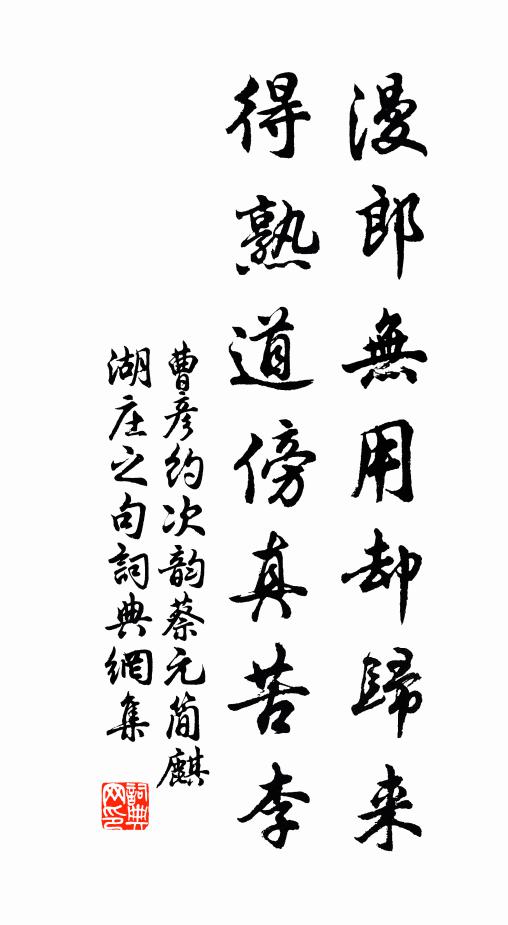 漫郎無用却歸来
得熟道傍真苦李
曹彦約次韵蔡元简麒
湖庄之句詞典網集
詞典
网印